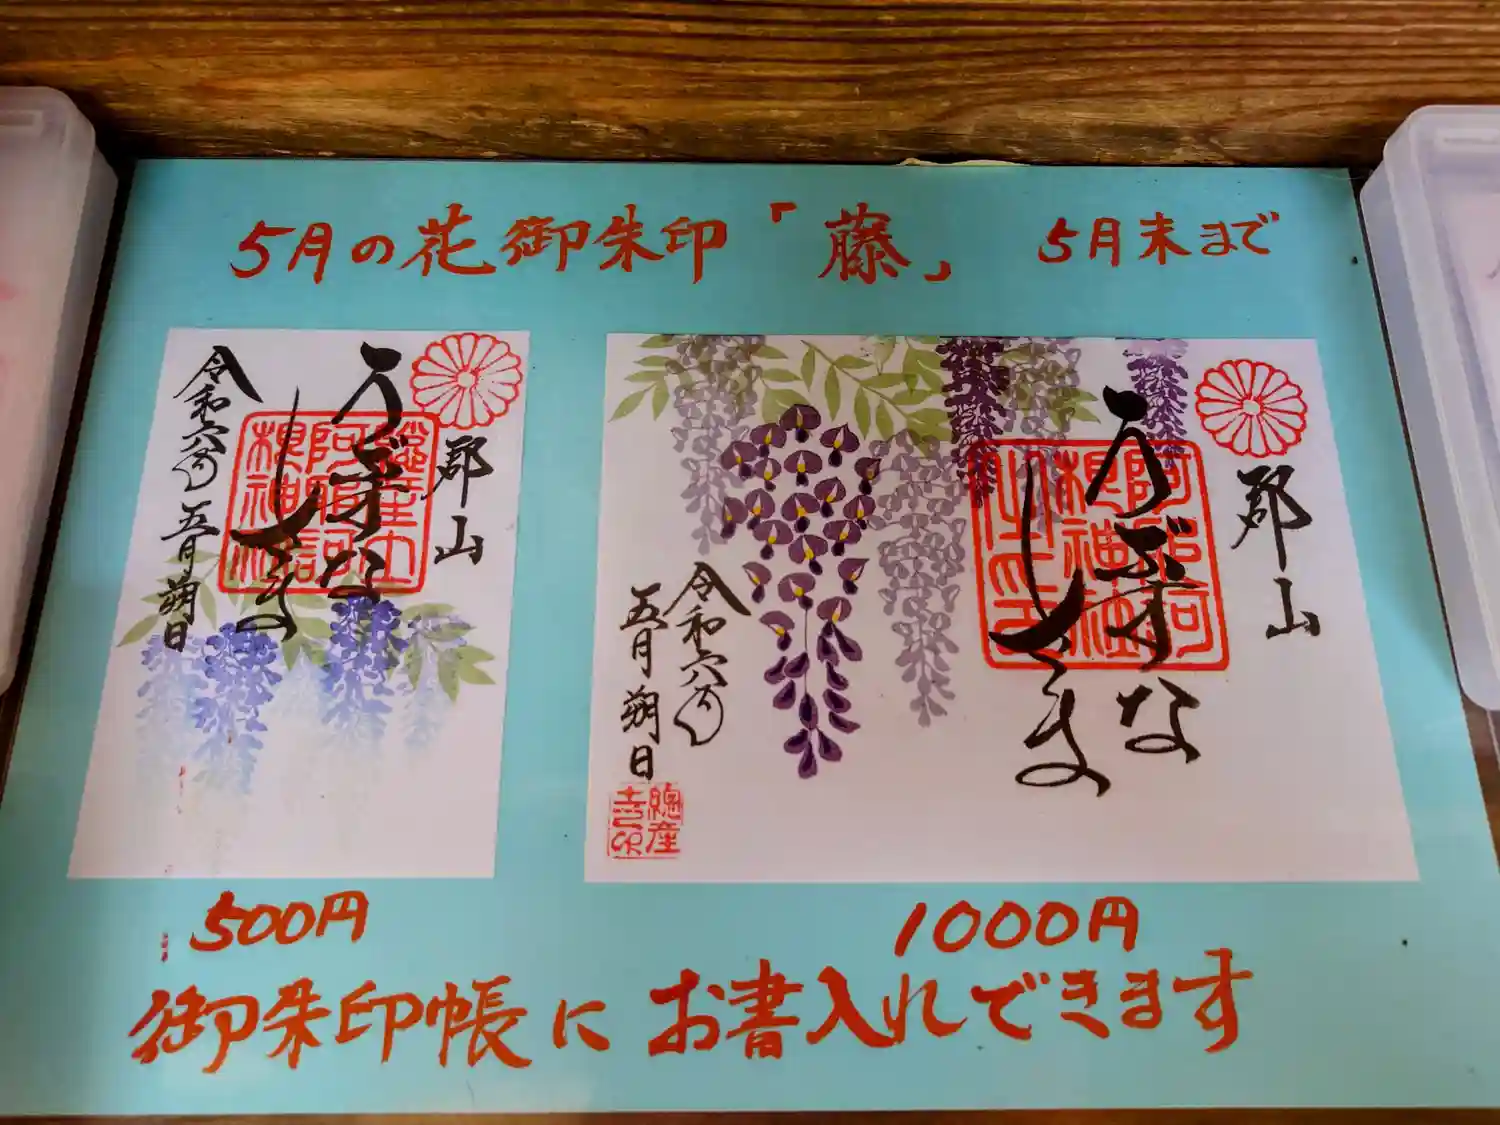 5月の花御朱印「藤」 5月末まで
郡山
うぶすな
令和六年
五月朔日
郡山
うぶすな
令和六年
五月朔日
500円
1000円
御朱印帳にお書入れできます